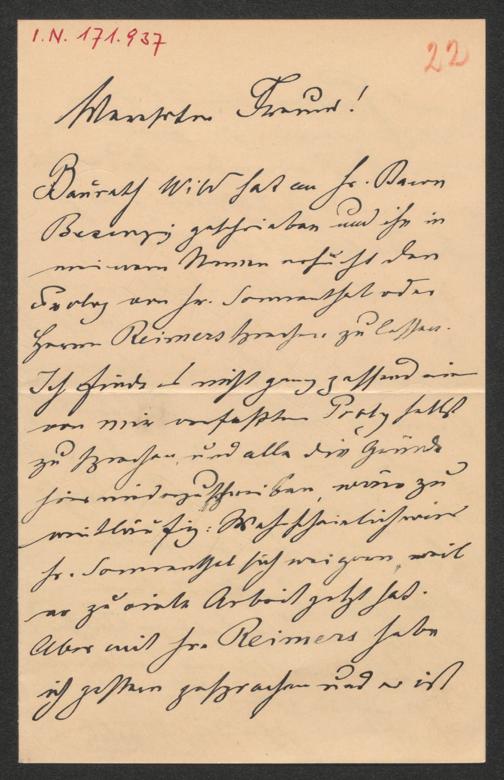 I.N. 171.937
22
Verehrter Freund!
Baurath Wild hat an Hr. Baron
Bezecny geschrieben und ihn in
meinem Namen ersucht den
Prolog von Hr. Sonnenthal oder
Herrn Reimers sprechen zu lassen.
Ich finde es nicht ganz passend ein
von mir verfaßten Prolog selbst
zu sprechen, und alle die Gründe
hier niederzuschreiben, wäre zu
weitläufig. Wahrscheinlich wird
Hr. Sonnenthal sich weigern, weil
er zu viele Arbeit jetzt hat.
Aber mit Hr. Reimers habe
ich gestern gesprochen und er ist